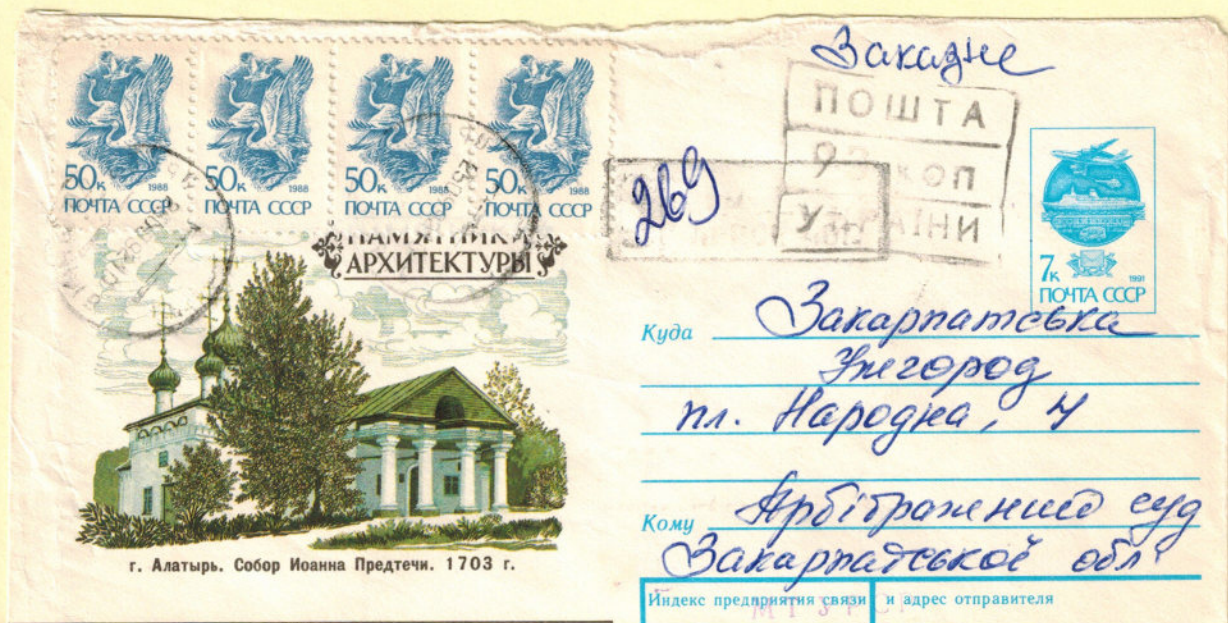 Заказне
ПОШТА
93 коп
УКРАЇНИ
269
50к 1988
ПОЧТА СССР
50к 1988
ПОЧТА СССР
50к 1988
ПОЧТА СССР
50к 1988
ПОЧТА СССР
7к 1991
ПОЧТА СССР
ПАМЯТНИКИ
АРХИТЕКТУРЫ
г. Алатырь. Собор Иоанна Предтечи. 1703 г.
Куда Закарпатська
Ужгород
пл. Народна, 4
Кому Арбітражний суд
Закарпатської обл.
Индекс предприятия связи и адрес отправителя